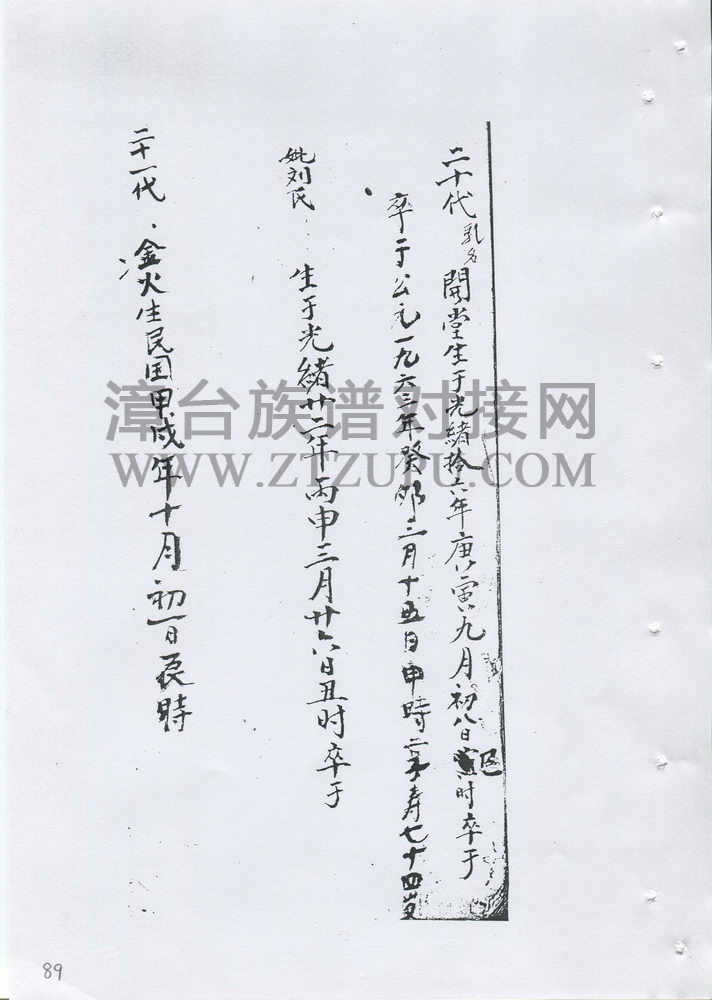 二十代 乳名 開堂生于光緒拾六年庚寅九月初八日 巳时卒于
卒于公元一九六三年癸卯三月十五日申時 享寿七十四岁
妣刘氏 生于光緒廿二年丙申三月廿六日丑时卒于
二十一代 金火生民国甲戌年十月初一日辰時
漳台族谱对接网
WWW.ZTZUPU.COM
89